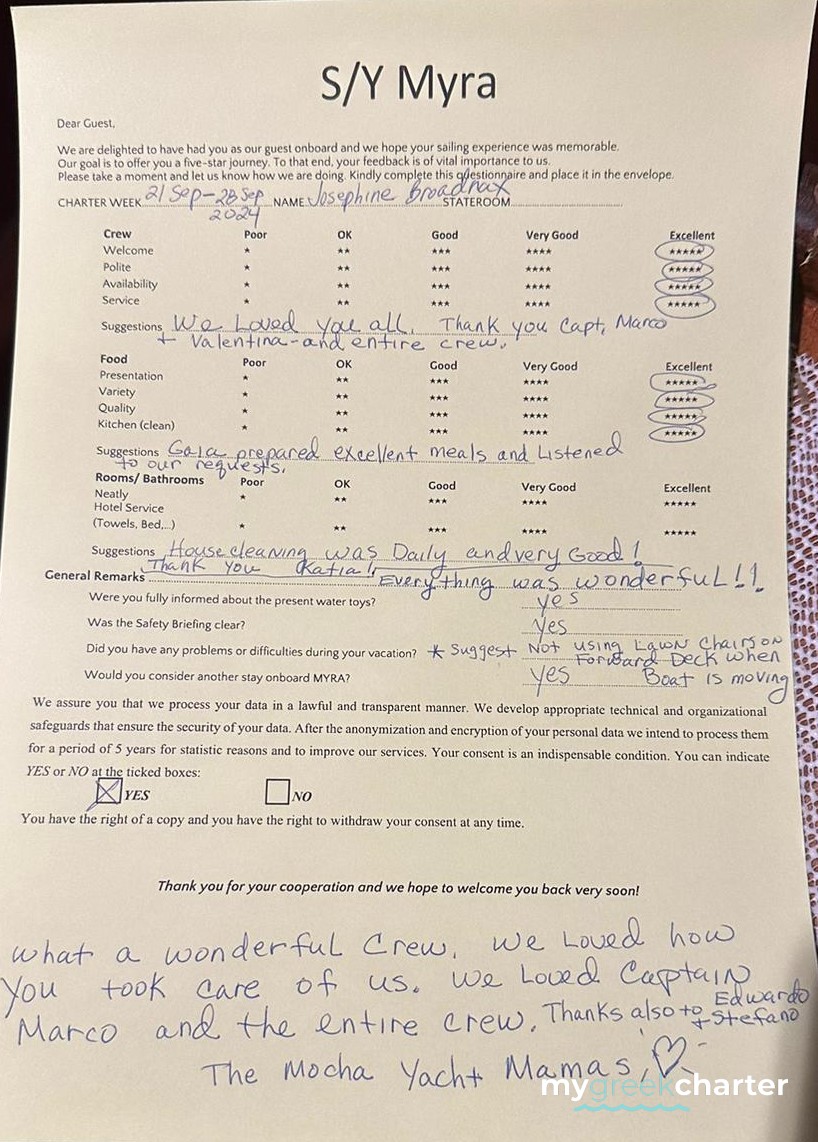 S/Y Myra
Dear Guest,
We are delighted to have had you as our guest onboard and we hope your sailing experience was memorable.
Our goal is to offer you a five-star journey. To that end, your feedback is of vital importance to us.
Please take a moment and let us know how we are doing. Kindly complete this questionnaire and place it in the envelope.
CHARTER WEEK 21 Sep - 28 Sep 2024 NAME: Josephine Broadnax STATEROOM
Crew Poor OK Good Very Good Excellent
Welcome * ** *** **** *****
Polite * ** *** **** *****
Availability * ** *** **** *****
Service * ** *** **** *****
Suggestions We Loved you all. Thank you Capt, Marco
+ Valentina - and entire crew.
Food Poor OK Good Very Good Excellent
Presentation * ** *** **** *****
Variety * ** *** **** *****
Quality * ** *** **** *****
Kitchen (clean) * ** *** **** *****
Suggestions Gaia prepared excellent meals and Listened
to our requests.
Rooms/ Bathrooms Poor OK Good Very Good Excellent
Neatly * ** *** **** *****
Hotel Service
(Towels, Bed,...) * ** *** **** *****
Suggestions House cleaning was Daily and very Good!
Thank you Katia!
General Remarks Everything was wonderful!!!
Were you fully informed about the present water toys? yes
Was the Safety Briefing clear? yes
Did you have any problems or difficulties during your vacation? * Suggest Not using Lawn Chairs on
Forward Deck when
Boat is moving
Would you consider another stay onboard MYRA? yes
We assure you that we process your data in a lawful and transparent manner. We develop appropriate technical and organizational
safeguards that ensure the security of your data. After the anonymization and encryption of your personal data we intend to process them
for a period of 5 years for statistic reasons and to improve our services. Your consent is an indispensable condition. You can indicate
YES or NO at the ticked boxes:
YES NO
You have the right of a copy and you have the right to withdraw your consent at any time.
Thank you for your cooperation and we hope to welcome you back very soon!
What a wonderful Crew. We Loved how
you took care of us. We Loved Captain
Marco and the entire crew. Thanks also to Edwardo
+ Stefano
The Mocha Yacht Mamas,
mygreekcharter